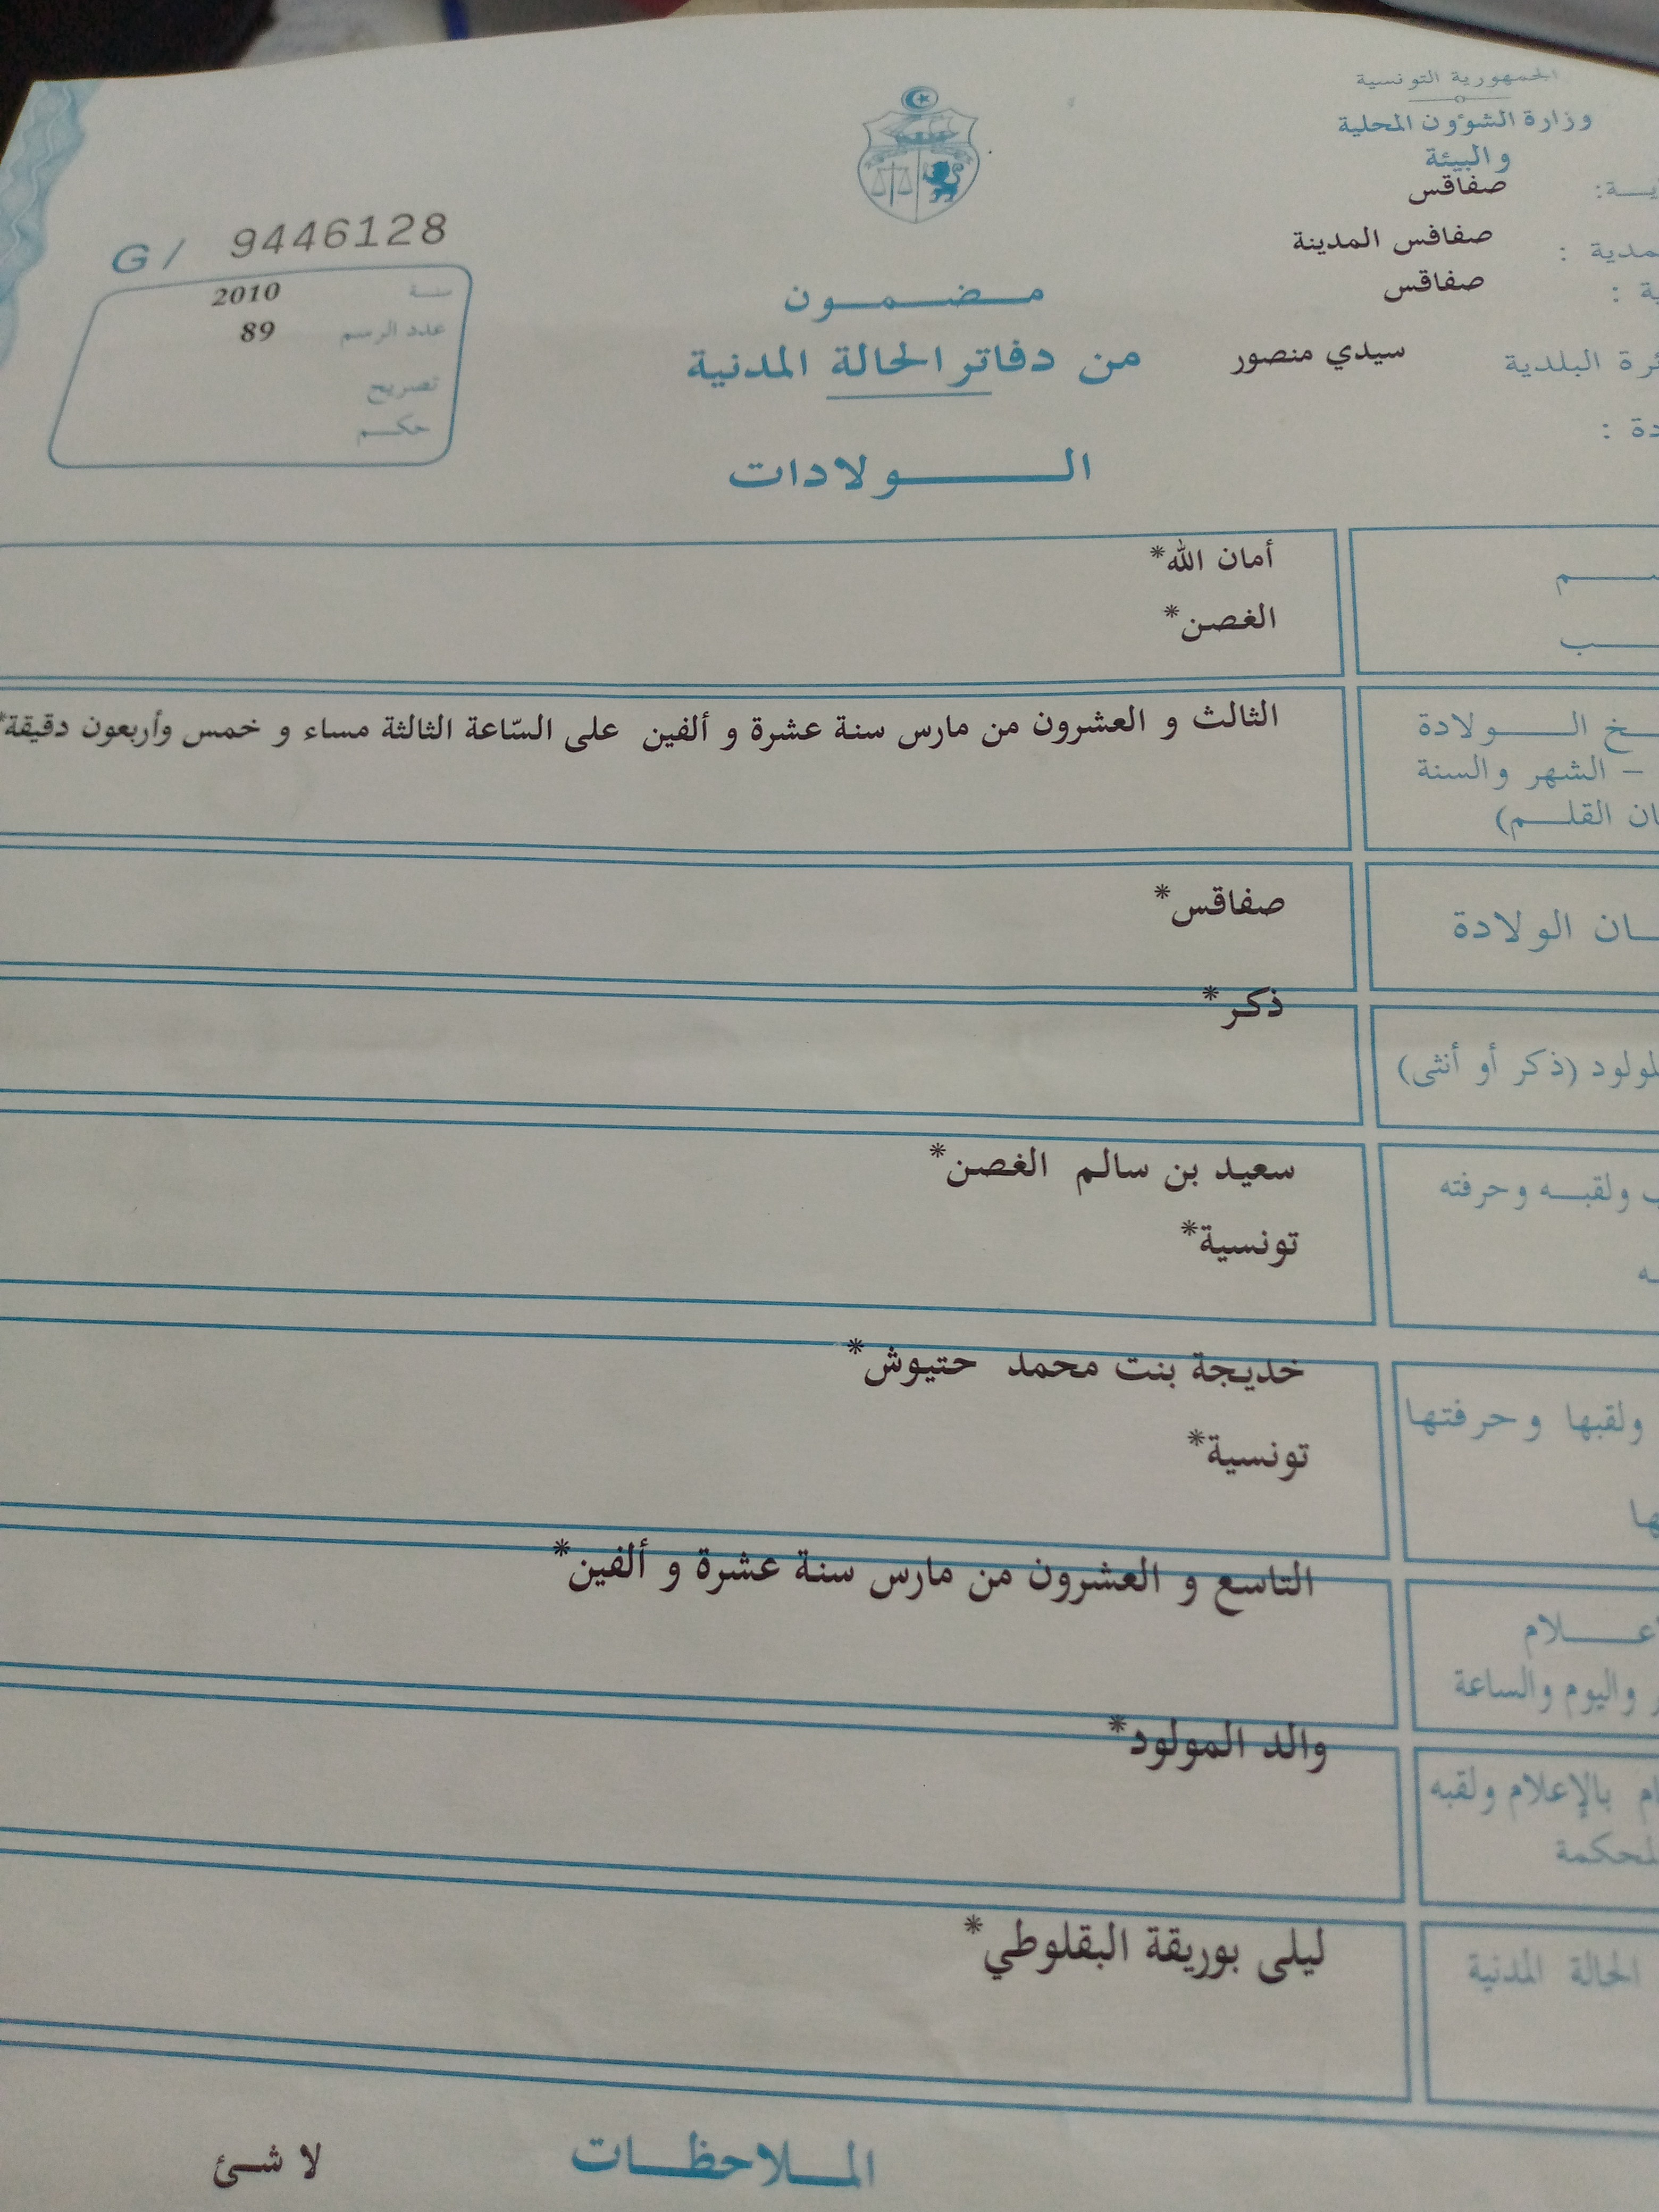 الجمهورية التونسية
وزارة الشؤون المحلية
والبيئة
صفاقس
صفاقس المدينة
صفاقس
البلدية سيدي منصور
G/ 9446128
سنة 2010
عدد الرسم 89
تصريح
حكم
مضمون
من دفاتر الحالة المدنية
الولادات
أمان الله*
الغصن*
الولادة
– الشهر والسنة
القلم)
الثالث و العشرون من مارس سنة عشرة و ألفين على السّاعة الثالثة مساء و خمس وأربعون دقيقة*
الولادة
صفاقس*
(ذكر أو أنثى)
ذكر*
ولقبه وحرفته
سعيد بن سالم الغصن*
تونسية*
ولقبها وحرفتها
خديجة بنت محمد حتيوش*
تونسية*
التاسع و العشرون من مارس سنة عشرة و ألفين*
واليوم والساعة
والد المولود*
بالإعلام ولقبه
الحالة المدنية
ليلى بوريقة البقلوطي*
الملاحظات
لا شئ